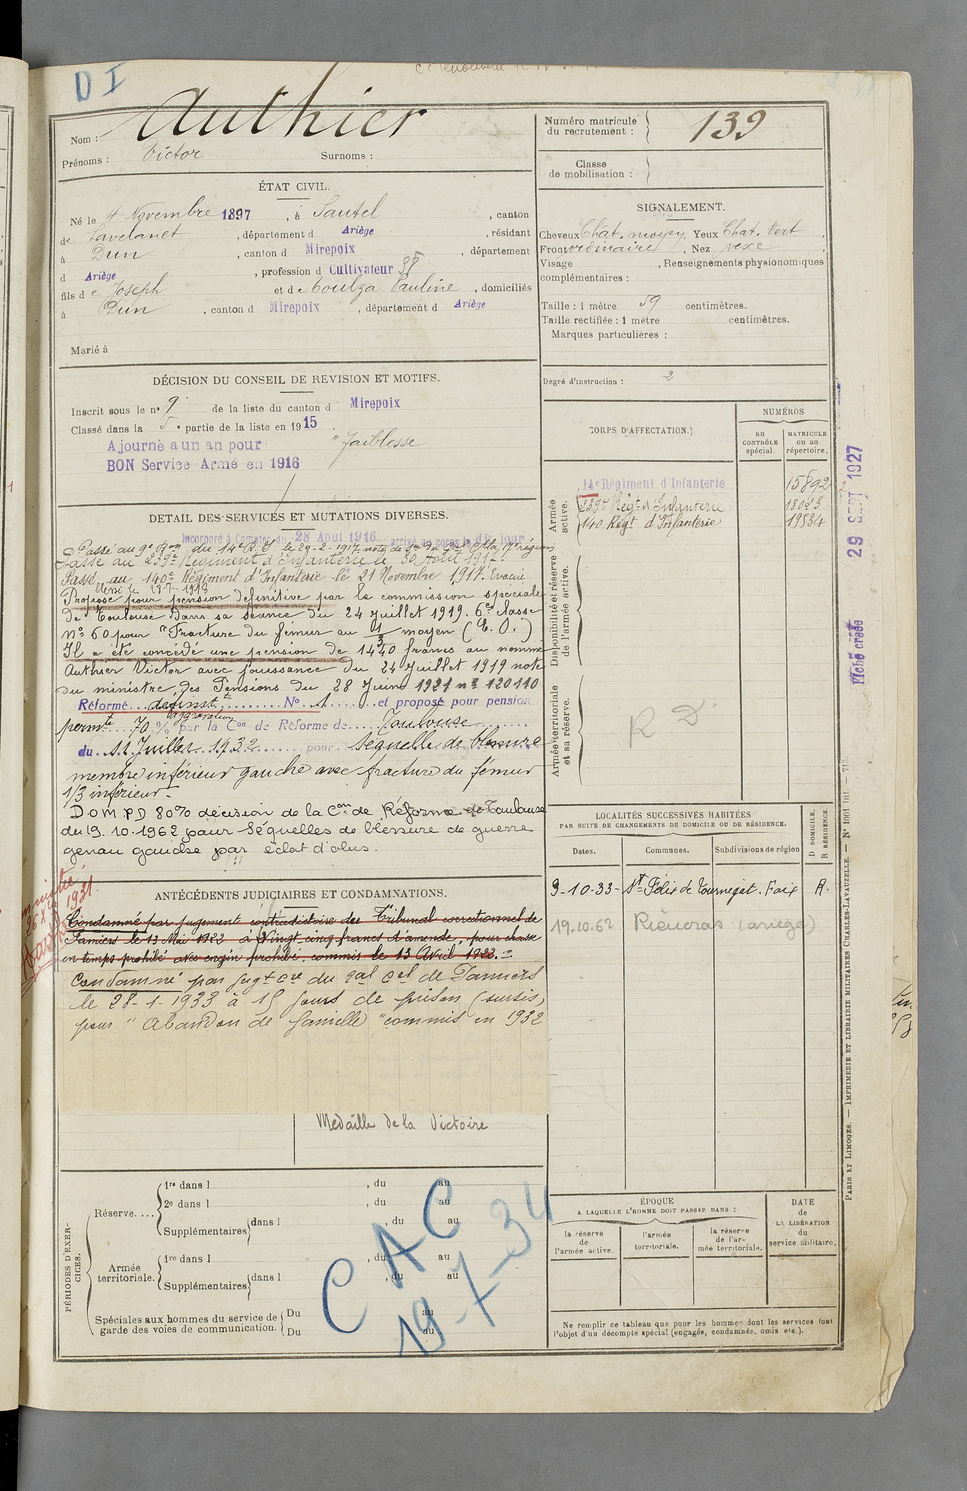 D I
Nom : Authier
Prénoms : Victor Surnoms :
Numéro matricule
du recrutement : 139
Classe
de mobilisation :
ÉTAT CIVIL.
Né le 4 Novembre 1897, à Sautel, canton
de Lavelanet, département d Ariège, résidant
à Dun, canton d Mirepoix, département
d Ariège, profession d Cultivateur
fils de Joseph et de Coulza Pauline, domiciliés
à Dun, canton d Mirepoix, département d Ariège
Marié à
SIGNALEMENT.
Cheveux Chat. moyen, Yeux Chat. Vert,
Front ordinaire, Nez vexe,
Visage , Renseignements physionomiques
complémentaires :
Taille : 1 mètre 59 centimètres.
Taille rectifiée : 1 mètre centimètres.
Marques particulières :
Degré d'instruction : 2
DÉCISION DU CONSEIL DE REVISION ET MOTIFS.
Inscrit sous le n° 9 de la liste du canton d Mirepoix
Classé dans la 5e partie de la liste en 1915.
Ajourné a un an pour "faiblesse
BON Service Armé en 1916
DETAIL DES SERVICES ET MUTATIONS DIVERSES.
Incorporé à Compter du 28 Aout 1916 arrivé au corps le dit jour
Passé au 9e Bon du 14e R.I. le 29-2-1917
Passé au 259e Régiment d'Infanterie le 30 Août 1917.
Passé au 140e Régiment d'Infanterie le 21 Novembre 1917. Evacué
Proposé pour pension définitive par la commission spéciale
de Toulouse dans sa séance du 24 Juillet 1919. 6e classe
N° 60 pour "Fracture du fémur au 1/3 moyen
Il a été concédé une pension de 1440 francs au nommé
Authier Victor avec jouissance du 24 Juillet 1919 note
du ministre des Pensions du 28 Juin 1921 n° 120110
Réformé définitt N° 1 et proposé pour pension
permte 70 % aggravation par la Con de Réforme de Toulouse
du 11 Juillet 1932 pour Séquelle de blessure
membre inférieur gauche avec fracture du fémur
1/3 inférieur.
DOM.PD 80% décision de la Con de Réforme de Toulouse
du 19.10.1962 pour Séquelles de blessure de guerre
genou gauche par éclat d'obus.
CORPS D'AFFECTATION.
NUMÉROS
au
CONTRÔLE
spécial.
MATRICULE
ou au
répertoire.
Armée
active.
14e Régiment d'Infanterie 15892
259e Regt d'Infanterie 18023
140 Regt d'Infanterie 19534
Disponibilité et réserve
de l'armée active.
Armée territoriale
et sa réserve.
R D.
29 SEPT 1927
Fiche créée
LOCALITÉS SUCCESSIVES HABITÉES
PAR SUITE DE CHANGEMENTS DE DOMICILE OU DE RÉSIDENCE.
Dates. Communes. Subdivisions de région
D DOMICILE.
R RÉSIDENCE.
9-10-33 St Félix de Tournegat. Foix R.
19.10.62 Rieucros (ariège)
ANTÉCÉDENTS JUDICIAIRES ET CONDAMNATIONS.
Condamné par jugement contradictoire du Tribunal correctionnel de
Pamiers le 13 Mai 1922 à Vingt cinq francs d'amende, pour chasse
en temps prohibé avec engin prohibé commis le 13 Avril 1922.
Condamné par jugt cre du bal cel de Pamiers
le 28-1-1933 à 15 jours de prison (sursis)
pour "Abandon de famille" commis en 1932
Médaille de la Victoire
PÉRIODES D'EXERCICES.
Réserve....
1re dans l , du au
2e dans l , du au
Supplémentaires dans l , du au
Armée
territoriale.
1re dans l , du au
Supplémentaires dans l , du au
Spéciales aux hommes du service de
garde des voies de communication.
Du au
Du au
CAC
19-7-34
ÉPOQUE
A LAQUELLE L'HOMME DOIT PASSER DANS :
la réserve
de
l'armée active.
l'armée
territoriale.
la réserve
de l'ar-
mée territoriale.
DATE
de
LA LIBÉRATION
du
service militaire.
Ne remplir ce tableau que pour les hommes dont les services font
l'objet d'un décompte spécial (engagés, condamnés, omis etc.).
PARIS ET LIMOGES. — IMPRIMERIE ET LIBRAIRIE MILITAIRES CHARLES-LAVAUZELLE.